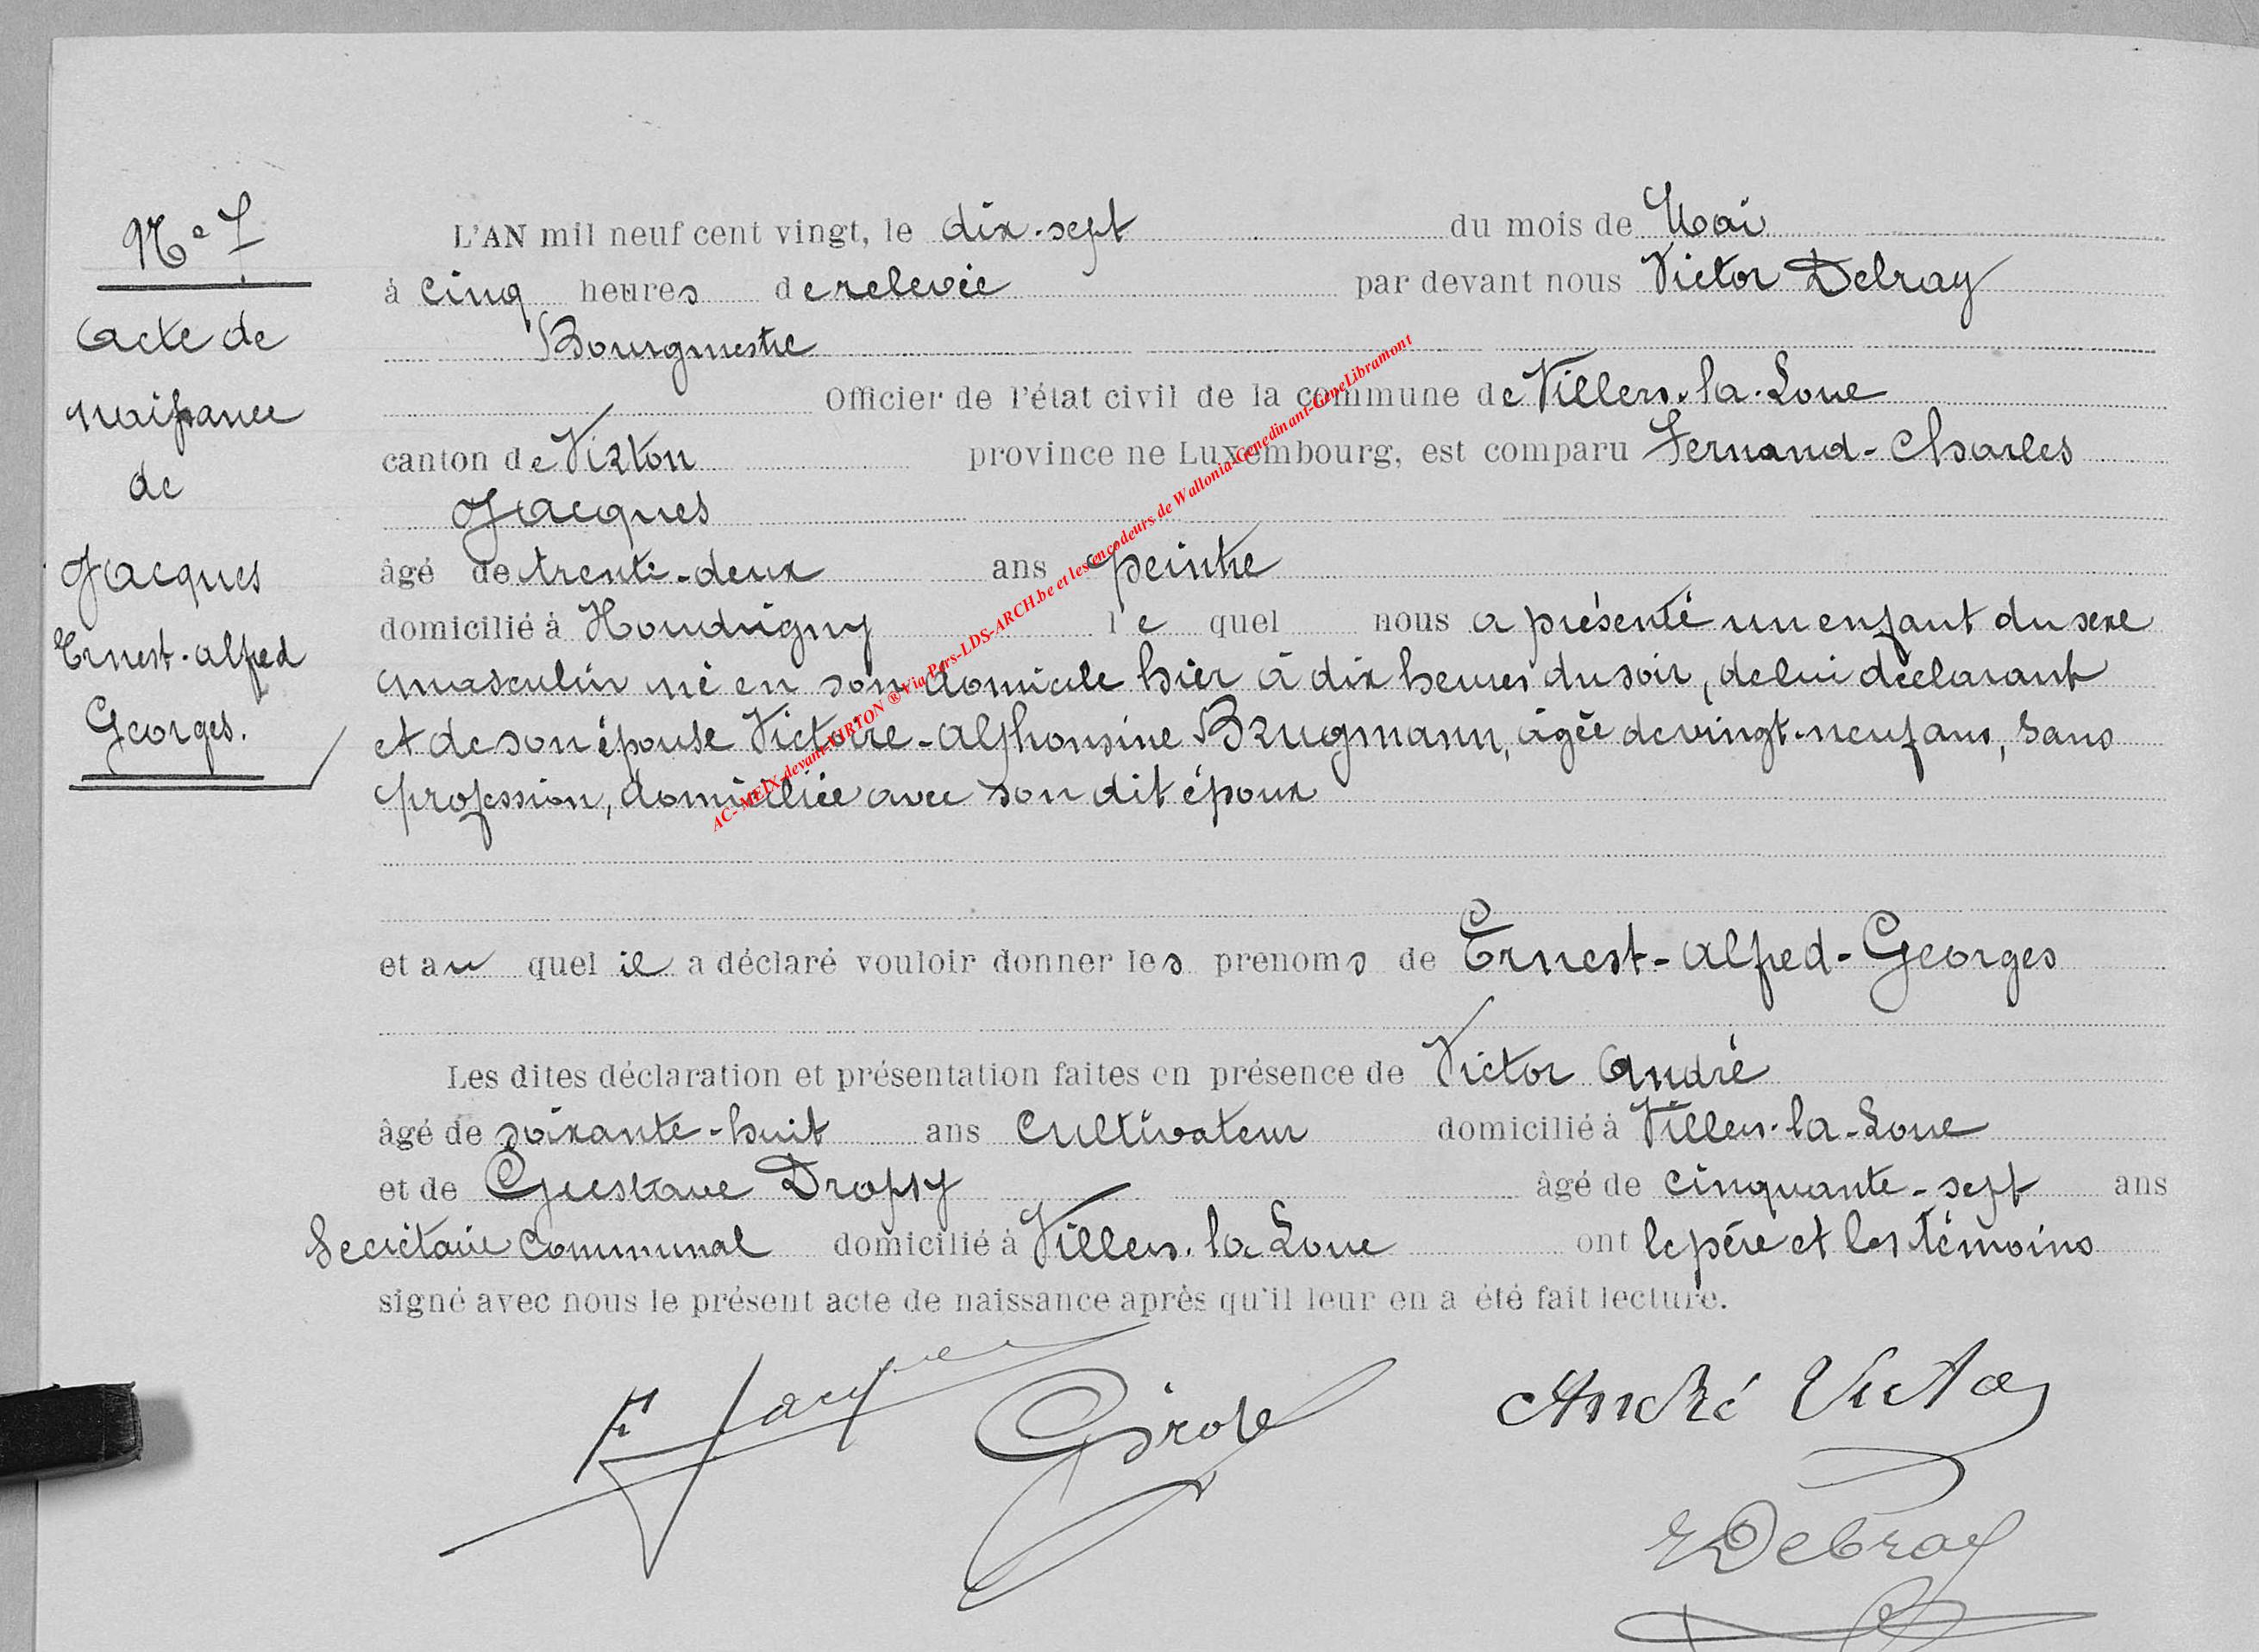 N° 7
Acte de
naissance
de
Jacques
Ernest-Alfred
Georges.
L'AN mil neuf cent vingt, le dix-sept du mois de Mai
à cinq heures de relevée par devant nous Victor Debray
Bourgmestre
Officier de l'état civil de la commune de Villers-la-Loue
canton de Virton province ne Luxembourg, est comparu Fernand-Charles
Jacques
âgé de trente-deux ans peintre
domicilié à Houdrigny le quel nous a présenté un enfant du sexe
masculin né en son domicile hier à dix heures du soir, de lui déclarant
et de son épouse Victoire-Alphonsine Brugmann, âgée de vingt-neuf ans, sans
profession, domiciliée avec son dit époux
et au quel il a déclaré vouloir donner les prenoms de Ernest-Alfred-Georges
Les dites déclaration et présentation faites en présence de Victor André
âgé de soixante-huit ans cultivateur domicilié à Villers-la-Loue
et de Gustave Dropsy âgé de cinquante-sept ans
Secrétaire communal domicilié à Villers-la-Loue ont le père et les témoins
signé avec nous le présent acte de naissance après qu'il leur en a été fait lecture.
F Jacques
André Victor
VDebray
AC-MEIX-devant-VIRTON ® Via Pers-LDS-ARCH.be et les encodeurs de Wallonia-Genedinant-GeneLibramont